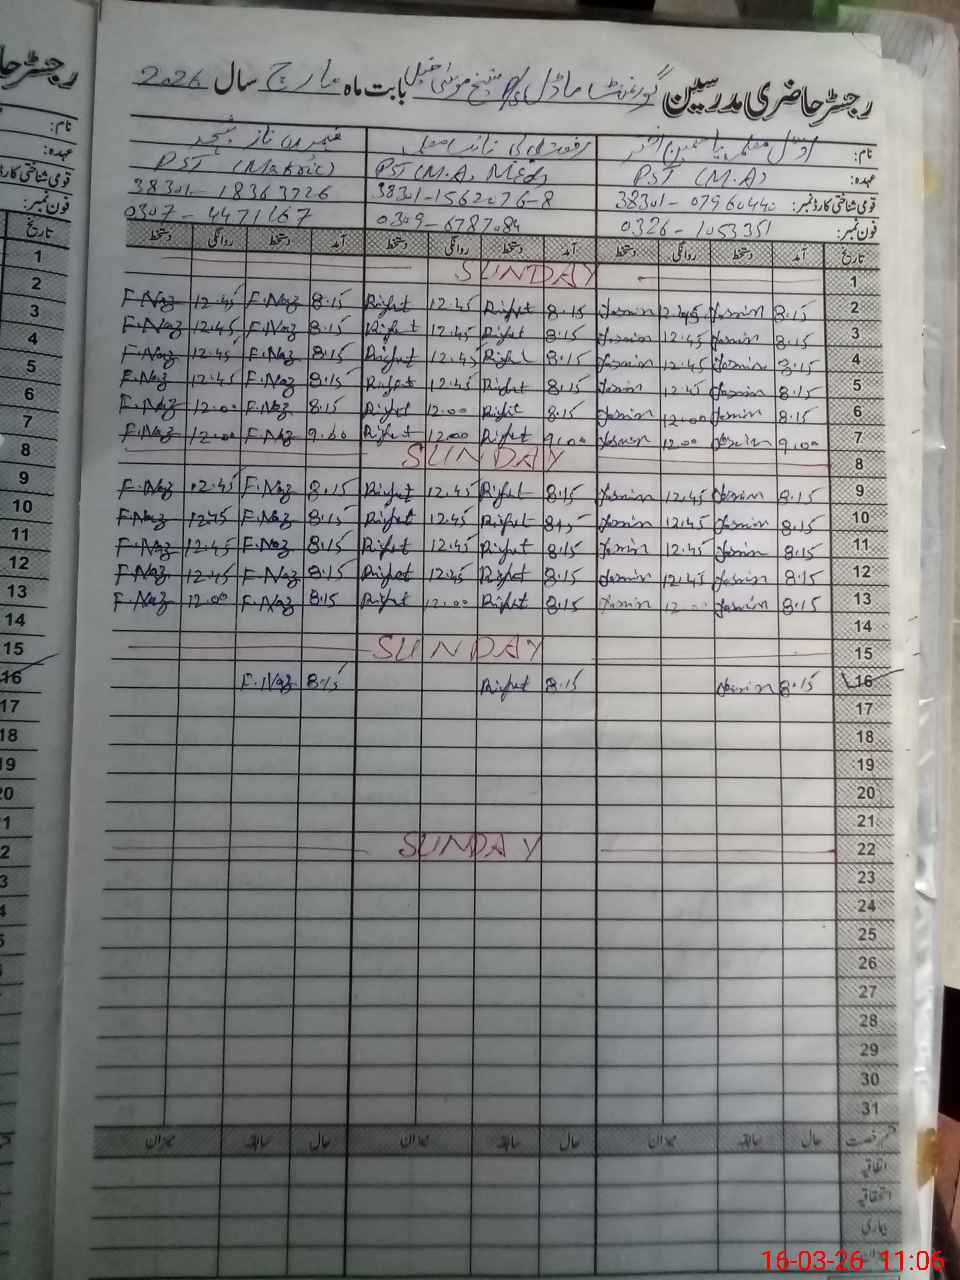 رجسٹر حاضری مدرسین گورنمنٹ ماڈل P/S شیخ موسیٰ خیل بابت ماہ مارچ سال 2026
نام:
عہدہ: PST (M.A) PST (M.A, M.Ed) PST (Matric)
قومی شناختی کارڈ نمبر: 38301-0796044 38301-1562076-8 38301-18363726
فون نمبر: 0326-1053351 0309-6787084 0307-4471167
تاریخ آمد دستخط روانگی دستخط آمد دستخط روانگی دستخط آمد دستخط روانگی دستخط
1 SUNDAY
2 8:15 Yasmin 12.45 Yasmin 8.15 Riffat 12.45 Riffat 8.15 F.Naz 12.45 F.Naz
3 8:15 Yasmin 12.45 Yasmin 8.15 Riffat 12.45 Riffat 8.15 F.Naz 12.45 F.Naz
4 8:15 Yasmin 12.45 Yasmin 8.15 Riffat 12.45 Riffat 8.15 F.Naz 12.45 F.Naz
5 8:15 Yasmin 12.45 Yasmin 8.15 Riffat 12.45 Riffat 8.15 F.Naz 12.45 F.Naz
6 8:15 Yasmin 12.00 Yasmin 8.15 Riffat 12.00 Riffat 8.15 F.Naz 12.00 F.Naz
7 9.00 Yasmin 12.00 Yasmin 9.00 Riffat 12.00 Riffat 9.00 F.Naz 12.00 F.Naz
8 SUNDAY
9 8:15 Yasmin 12.45 Yasmin 8.15 Riffat 12.45 Riffat 8.15 F.Naz 12.45 F.Naz
10 8:15 Yasmin 12.45 Yasmin 8.15 Riffat 12.45 Riffat 8.15 F.Naz 12.45 F.Naz
11 8:15 Yasmin 12.45 Yasmin 8.15 Riffat 12.45 Riffat 8.15 F.Naz 12.45 F.Naz
12 8:15 Yasmin 12.45 Yasmin 8.15 Riffat 12.45 Riffat 8.15 F.Naz 12.45 F.Naz
13 8:15 Yasmin 12.00 Yasmin 8.15 Riffat 12.00 Riffat 8.15 F.Naz 12.00 F.Naz
14
15 SUNDAY
16 8:15 Yasmin 8.15 Riffat 8.15 F.Naz
17
18
19
20
21
22 SUNDAY
23
24
25
26
27
28
29
30
31
قسم رخصت حال سابقہ میزان حال سابقہ میزان حال سابقہ میزان
اتفاقیہ
استحقاقیہ
بیماری
میزان
16-03-26 11:06